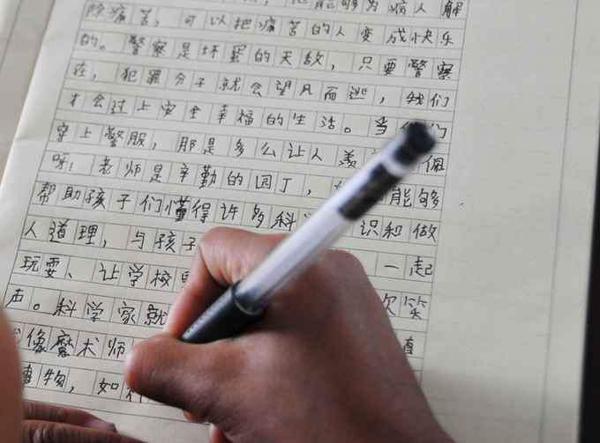 能够为病人解
除痛苦，可以把痛苦的人变成快乐
的。警察是坏蛋的天敌，只要警察
在，犯罪分子就会望风而逃，我们
才会过上安全幸福的生活。当 们
穿上警服，那是多么让人羡 佩
呀！老师是辛勤的园丁， 能够
帮助孩子们懂得许多科 识和做
人道理，与孩子 一起
玩耍、让学校 欢笑
声。科学家就
像魔术师
物，如